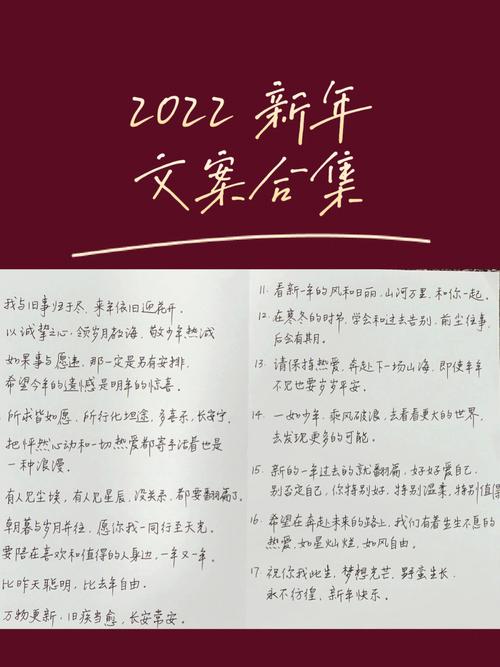 2022 新年
文案合集
我与旧事归于尽、来年依旧迎花开。
以诚挚之心,领岁月教诲,敬少年热诚
如果事与愿违,那一定是另有安排,
希望今年的遗憾是明年的惊喜。
所求皆如愿,所行化坦途,多喜乐,长安宁。
把怦然心动和一切热爱都寄予活着也是
一种浪漫。
有人见尘埃,有人见星辰,没关系,都要翻篇了。
朝暮与岁月并往,愿你我一同行至天光。
要陪在喜欢和值得的人身边,一年又一年。
比昨天聪明,比去年自由。
万物更新,旧疾当愈,长安常安。
11. 看新一年的风和日丽,山河万里,和你一起。
12. 在寒冬的时节,学会和过去告别,前尘往事,
后会有期。
13. 请保持热爱,奔赴下一场山海,即使年年
不见也要岁岁平安。
14. 一如少年,乘风破浪,去看看更大的世界,
去发现更多的可能。
15. 新的一年过去的就翻篇,好好爱自己,
别否定自己,你特别好,特别温柔,特别值得
16. 希望在奔赴未来的路上,我们有着生生不息的
热爱,如星灿烂,如风自由。
17. 祝你我此生,梦想光芒,野蛮生长,
永不彷徨,新年快乐。